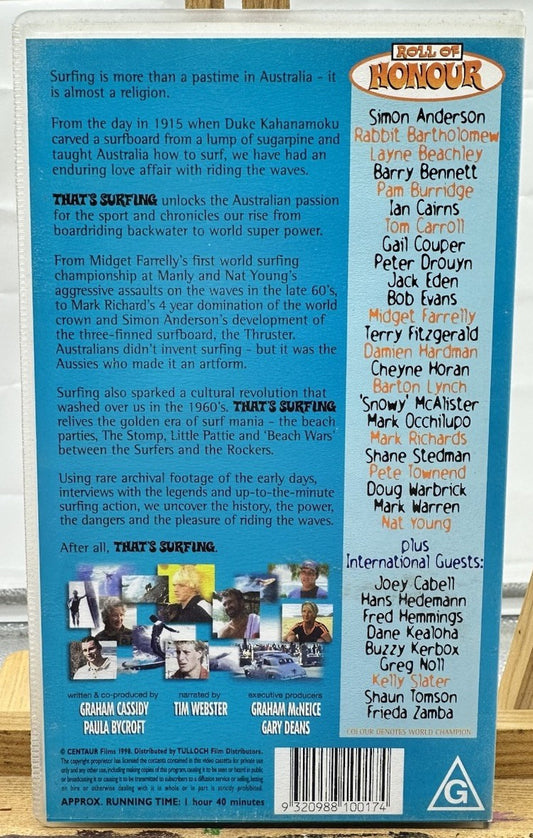 Surfing is more than a pastime in Australia - it
is almost a religion.
From the day in 1915 when Duke Kahanamoku
carved a surfboard from a lump of sugarpine and
taught Australia how to surf, we have had an
enduring love affair with riding the waves.
THAT'S SURFING unlocks the Australian passion
for the sport and chronicles our rise from
boardriding backwater to world super power.
From Midget Farrelly's first world surfing
championship at Manly and Nat Young's
aggressive assaults on the waves in the late 60's,
to Mark Richard's 4 year domination of the world
crown and Simon Anderson's development of
the three-finned surfboard, the Thruster.
Australians didn't invent surfing - but it was the
Aussies who made it an artform.
Surfing also sparked a cultural revolution that
washed over us in the 1960's. THAT'S SURFING
relives the golden era of surf mania - the beach
parties, The Stomp, Little Pattie and 'Beach Wars'
between the Surfers and the Rockers.
Using rare archival footage of the early days,
interviews with the legends and up-to-the-minute
surfing action, we uncover the history, the power,
the dangers and the pleasure of riding the waves.
After all, THAT'S SURFING.
written & co-produced by
GRAHAM CASSIDY
PAULA BYCROFT
narrated by
TIM WEBSTER
executive producers
GRAHAM McNEICE
GARY DEANS
© CENTAUR Films 1998. Distributed by TULLOCH Film Distributors.
The copyright proprietor has licensed the contents contained in this video cassette for private use
only and any other use, including making copies of this program causing it to be seen or heard in public
or broadcasting it or causing it to be transmitted to subscribers to a diffusion service or selling, letting
or otherwise dealing with it in whole or in part is strictly prohibited.
APPROX. RUNNING TIME: 1 hour 40 minutes
9 320988 100174
ROLL OF
HONOUR
Simon Anderson
Rabbit Bartholomew
Layne Beachley
Barry Bennett
Pam Burridge
Ian Cairns
Tom Carroll
Gail Couper
Peter Drouyn
Jack Eden
Bob Evans
Midget Farrelly
Terry Fitzgerald
Damien Hardman
Cheyne Horan
Barton Lynch
'Snowy' McAlister
Mark Occhilupo
Mark Richards
Shane Stedman
Pete Townend
Doug Warbrick
Mark Warren
Nat Young
plus
International Guests:
Joey Cabell
Hans Hedemann
Fred Hemmings
Dane Kealoha
Buzzy Kerbox
Greg Noll
Kelly Slater
Shaun Tomson
Frieda Zamba
COLOUR DENOTES WORLD CHAMPION
G